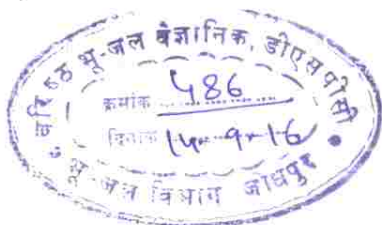 वरिष्ठ भू-जल वैज्ञानिक, डीएसपीसी
क्रमांक 486
दिनांक 14-9-16
भू-जल विभाग जोधपुर